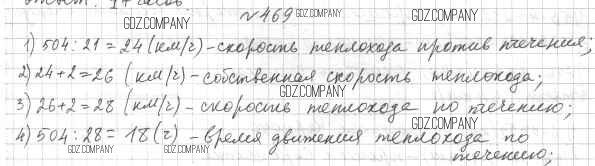 Ответ: 17 часов.
GDZ.COMPANY
№469 GDZ.COMPANY
1) 504:21=24 (км/ч)-скорость теплохода против течения;
GDZ.COMPANY
2) 24+2=26 (км/ч)-собственная скорость теплохода;
GDZ.COMPANY
3) 26+2=28 (км/ч)-скорость теплохода по течению;
GDZ.COMPANY
4) 504:28= 18 (ч) - время движения теплохода по
GDZ.COMPANY GDZ.COMPANY течению;